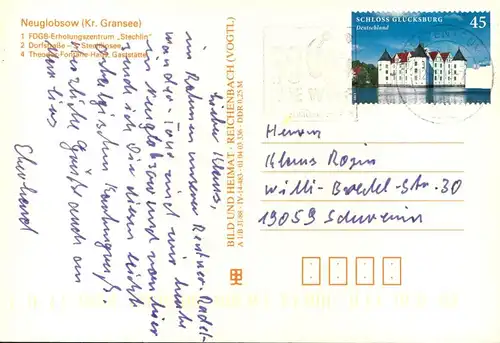 Neuglobsow (Kr. Gransee)
1 FDGB-Erholungszentrum „Stechlin“
2 Dorfstraße – 3 Stechlinsee
4 Theodor-Fontane-Haus, Gaststätte
Lieber Klaus,
im Rahmen unserer Rentner-Radel-
wander-Tour sind wir heute
in Neuglobsow und von hier
sende ich Dir diesen leicht
nostalgischen Kartengruß
Herzliche Grüße auch an
Eberhard
BILD UND HEIMAT · REICHENBACH (VOGTL)
A 1/B 31/88 · IV-14-483 · 01 04 03 336 · DDR 0,25 M
SCHLOSS GLÜCKSBURG
Deutschland
45
Herrn
Klaus Rogin
Willi-Bredel-Str. 30
19059 Schwerin